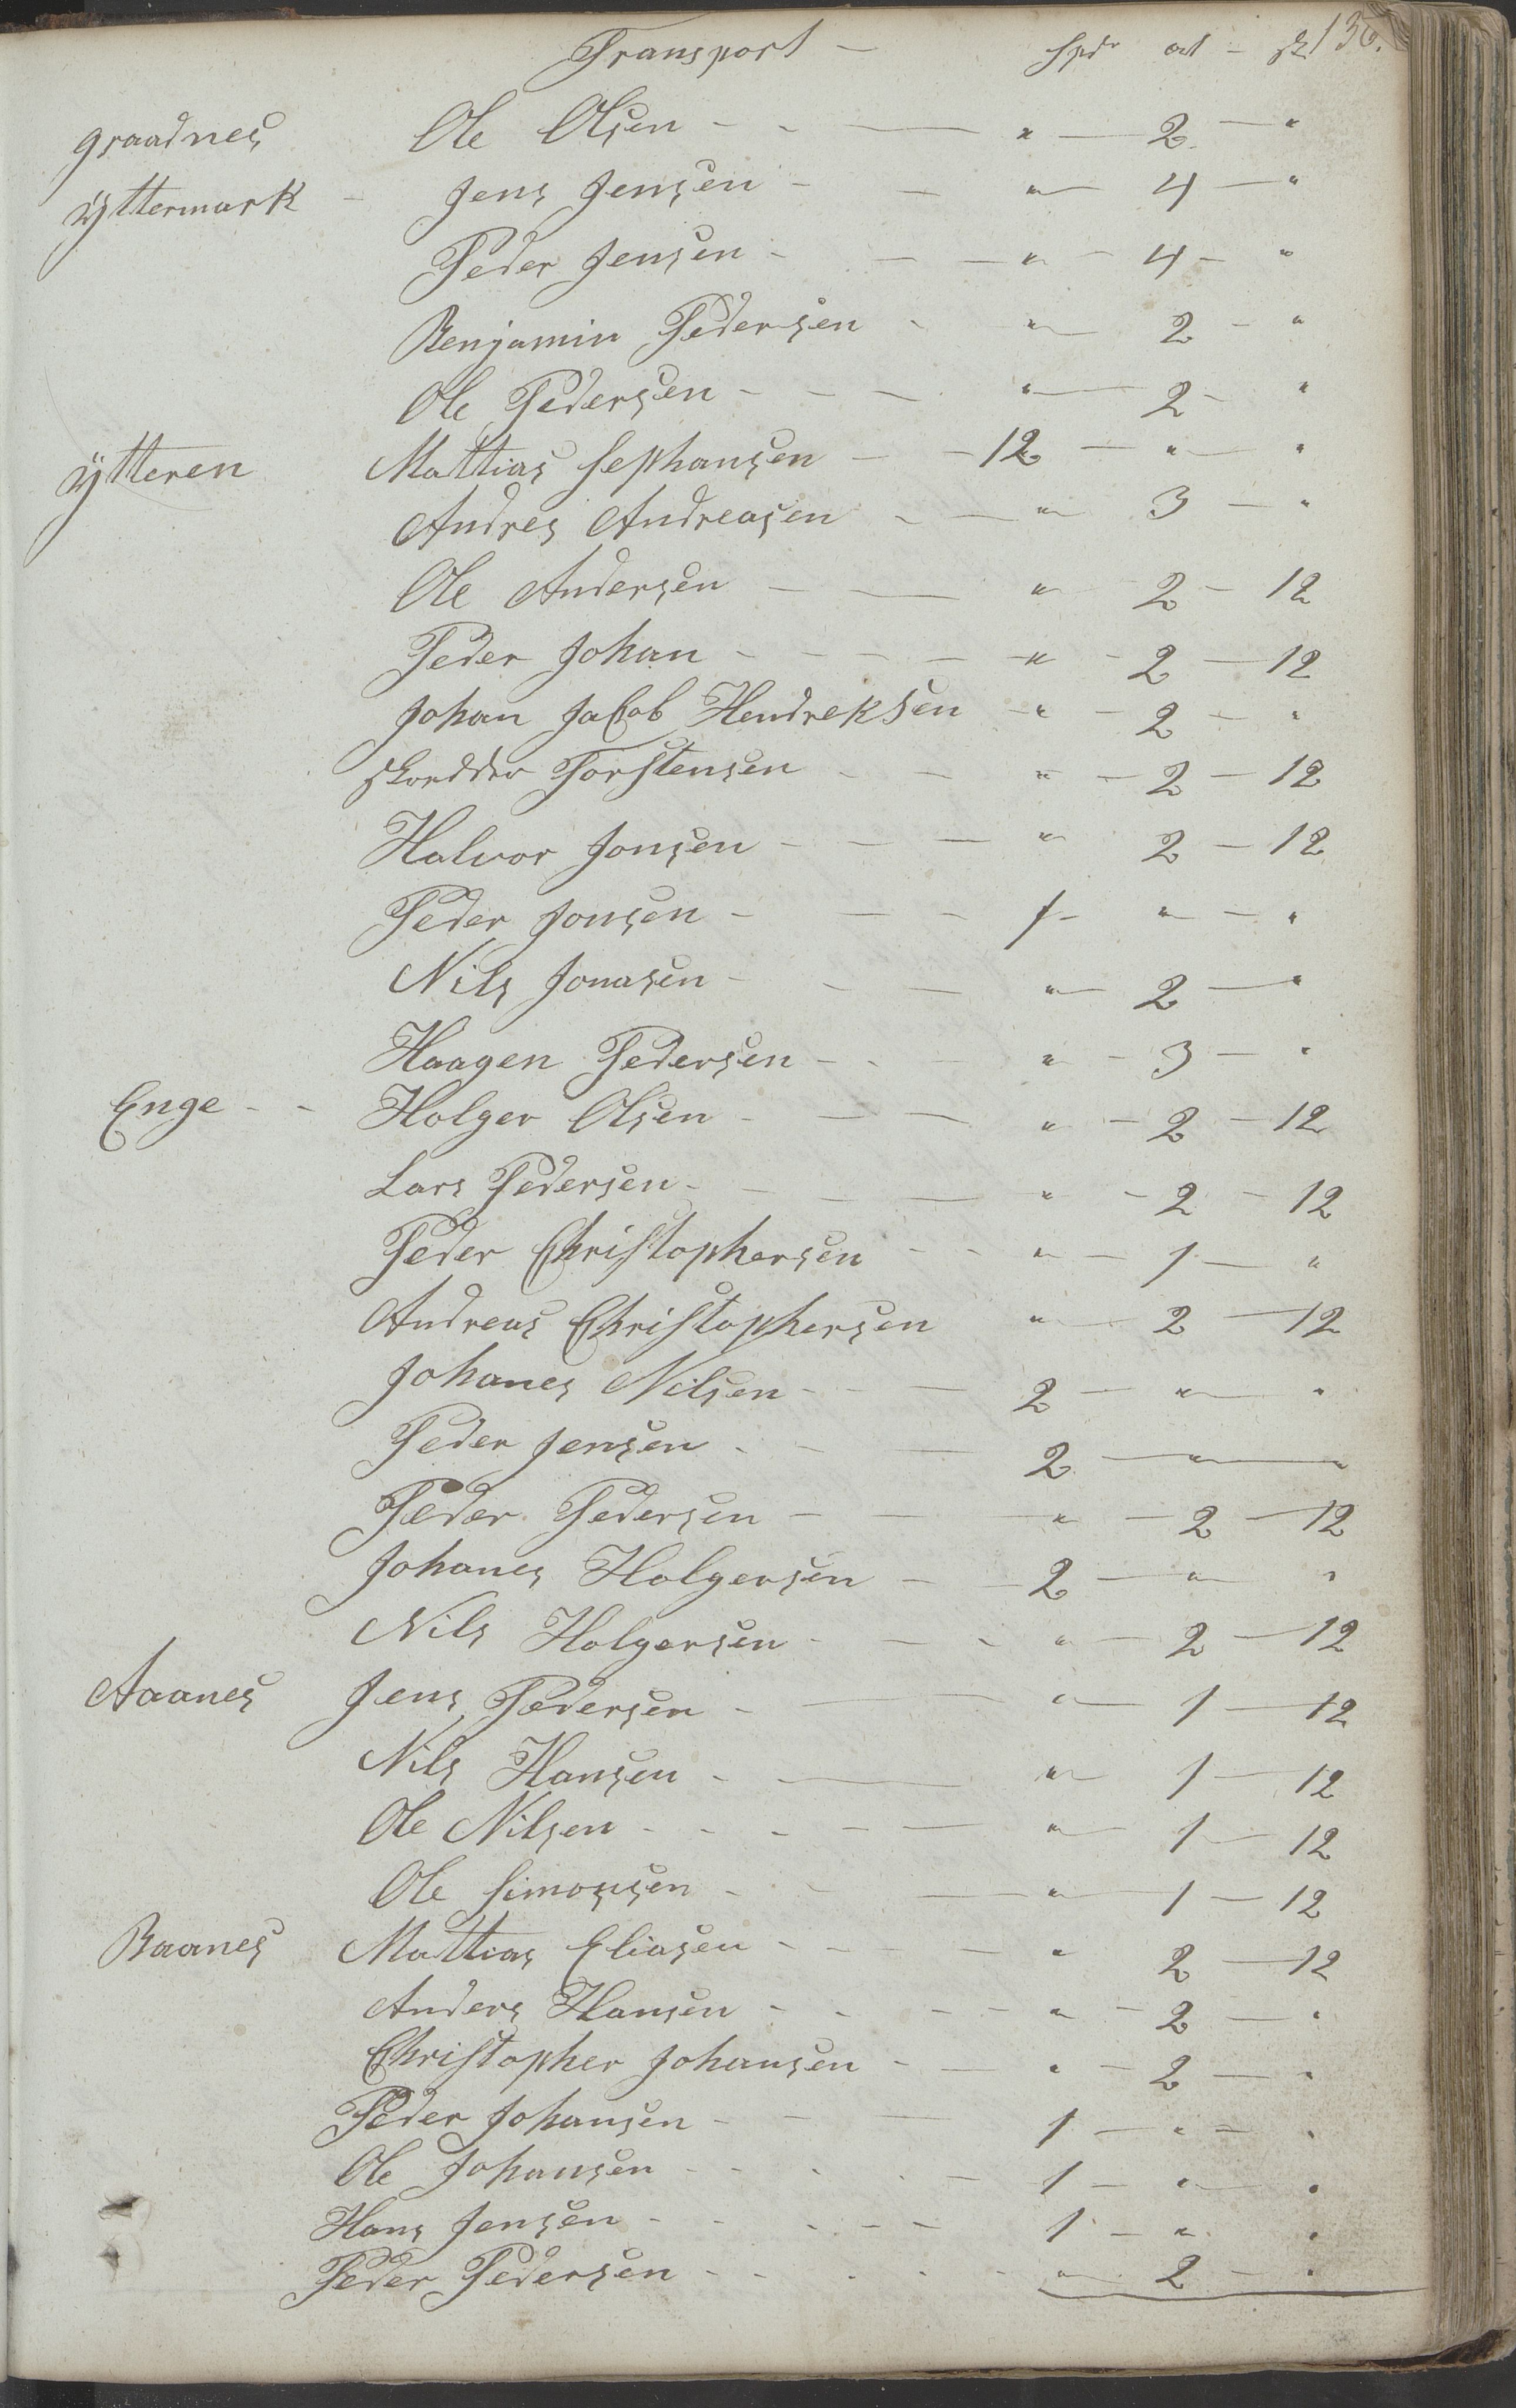 Transport - Spdr ort - sk 136.
graadnes Ole Olsen - - - " - 2 - "
yttermark - Jens Jensen - - " - 4 - "
Peder Jensen - - - " - 4 - "
Benjamin Pedersen - " - 2 - "
Ole Pedersen - - - " - 2 - "
ytteren Mattias Sephansen - - 12 - " - "
Andres Andreasen - - " 3 - "
Ole Andersen - - " 2 - 12
Peder Johan - - - - - " - 2 - 12
Johan Jacob Hendreksen - " - 2 - "
skredder Torstensen - - " - 2 - 12
Halvor Jonsen - - - " 2 - 12
Peder Jonsen - - - 1 - " - "
Nils Jonasen - - - " - 2 - "
Haagen Pedersen - - - " - 3 - "
Enge - - Holger Olsen - - - " - 2 - 12
Lars Pedersen - - - - " - 2 - 12
Peder Christophersen - - " - 1 - "
Andreas Christophersen " - 2 - 12
Johanes Nilsen - - - 2 - " - "
Peder Jensen - - - 2 - " - "
Peder Pedersen - - - " - 2 - 12
Johanes Holgersen - - 2 - " - "
Nils Holgersen - - - " - 2 - 12
Aaanes Jens Pedersen - - " - 1 - 12
Nils Hansen - - " - 1 - 12
Ole Nilsen - - - - - " - 1 - 12
Ole Simonsen - - - " - 1 - 12
Baanes Mattias Eliasen - - - - " 2 - 12
Anders Hansen - - - - " - 2 - "
Christopher Johansen - - " - 2 - "
Peder Johansen - - - 1 - " - "
Ole Johansen - - - - - 1 - " - "
Hans Jensen - - - - - 1 - " "
Peder Pedersen - - - - - " - 2 - "